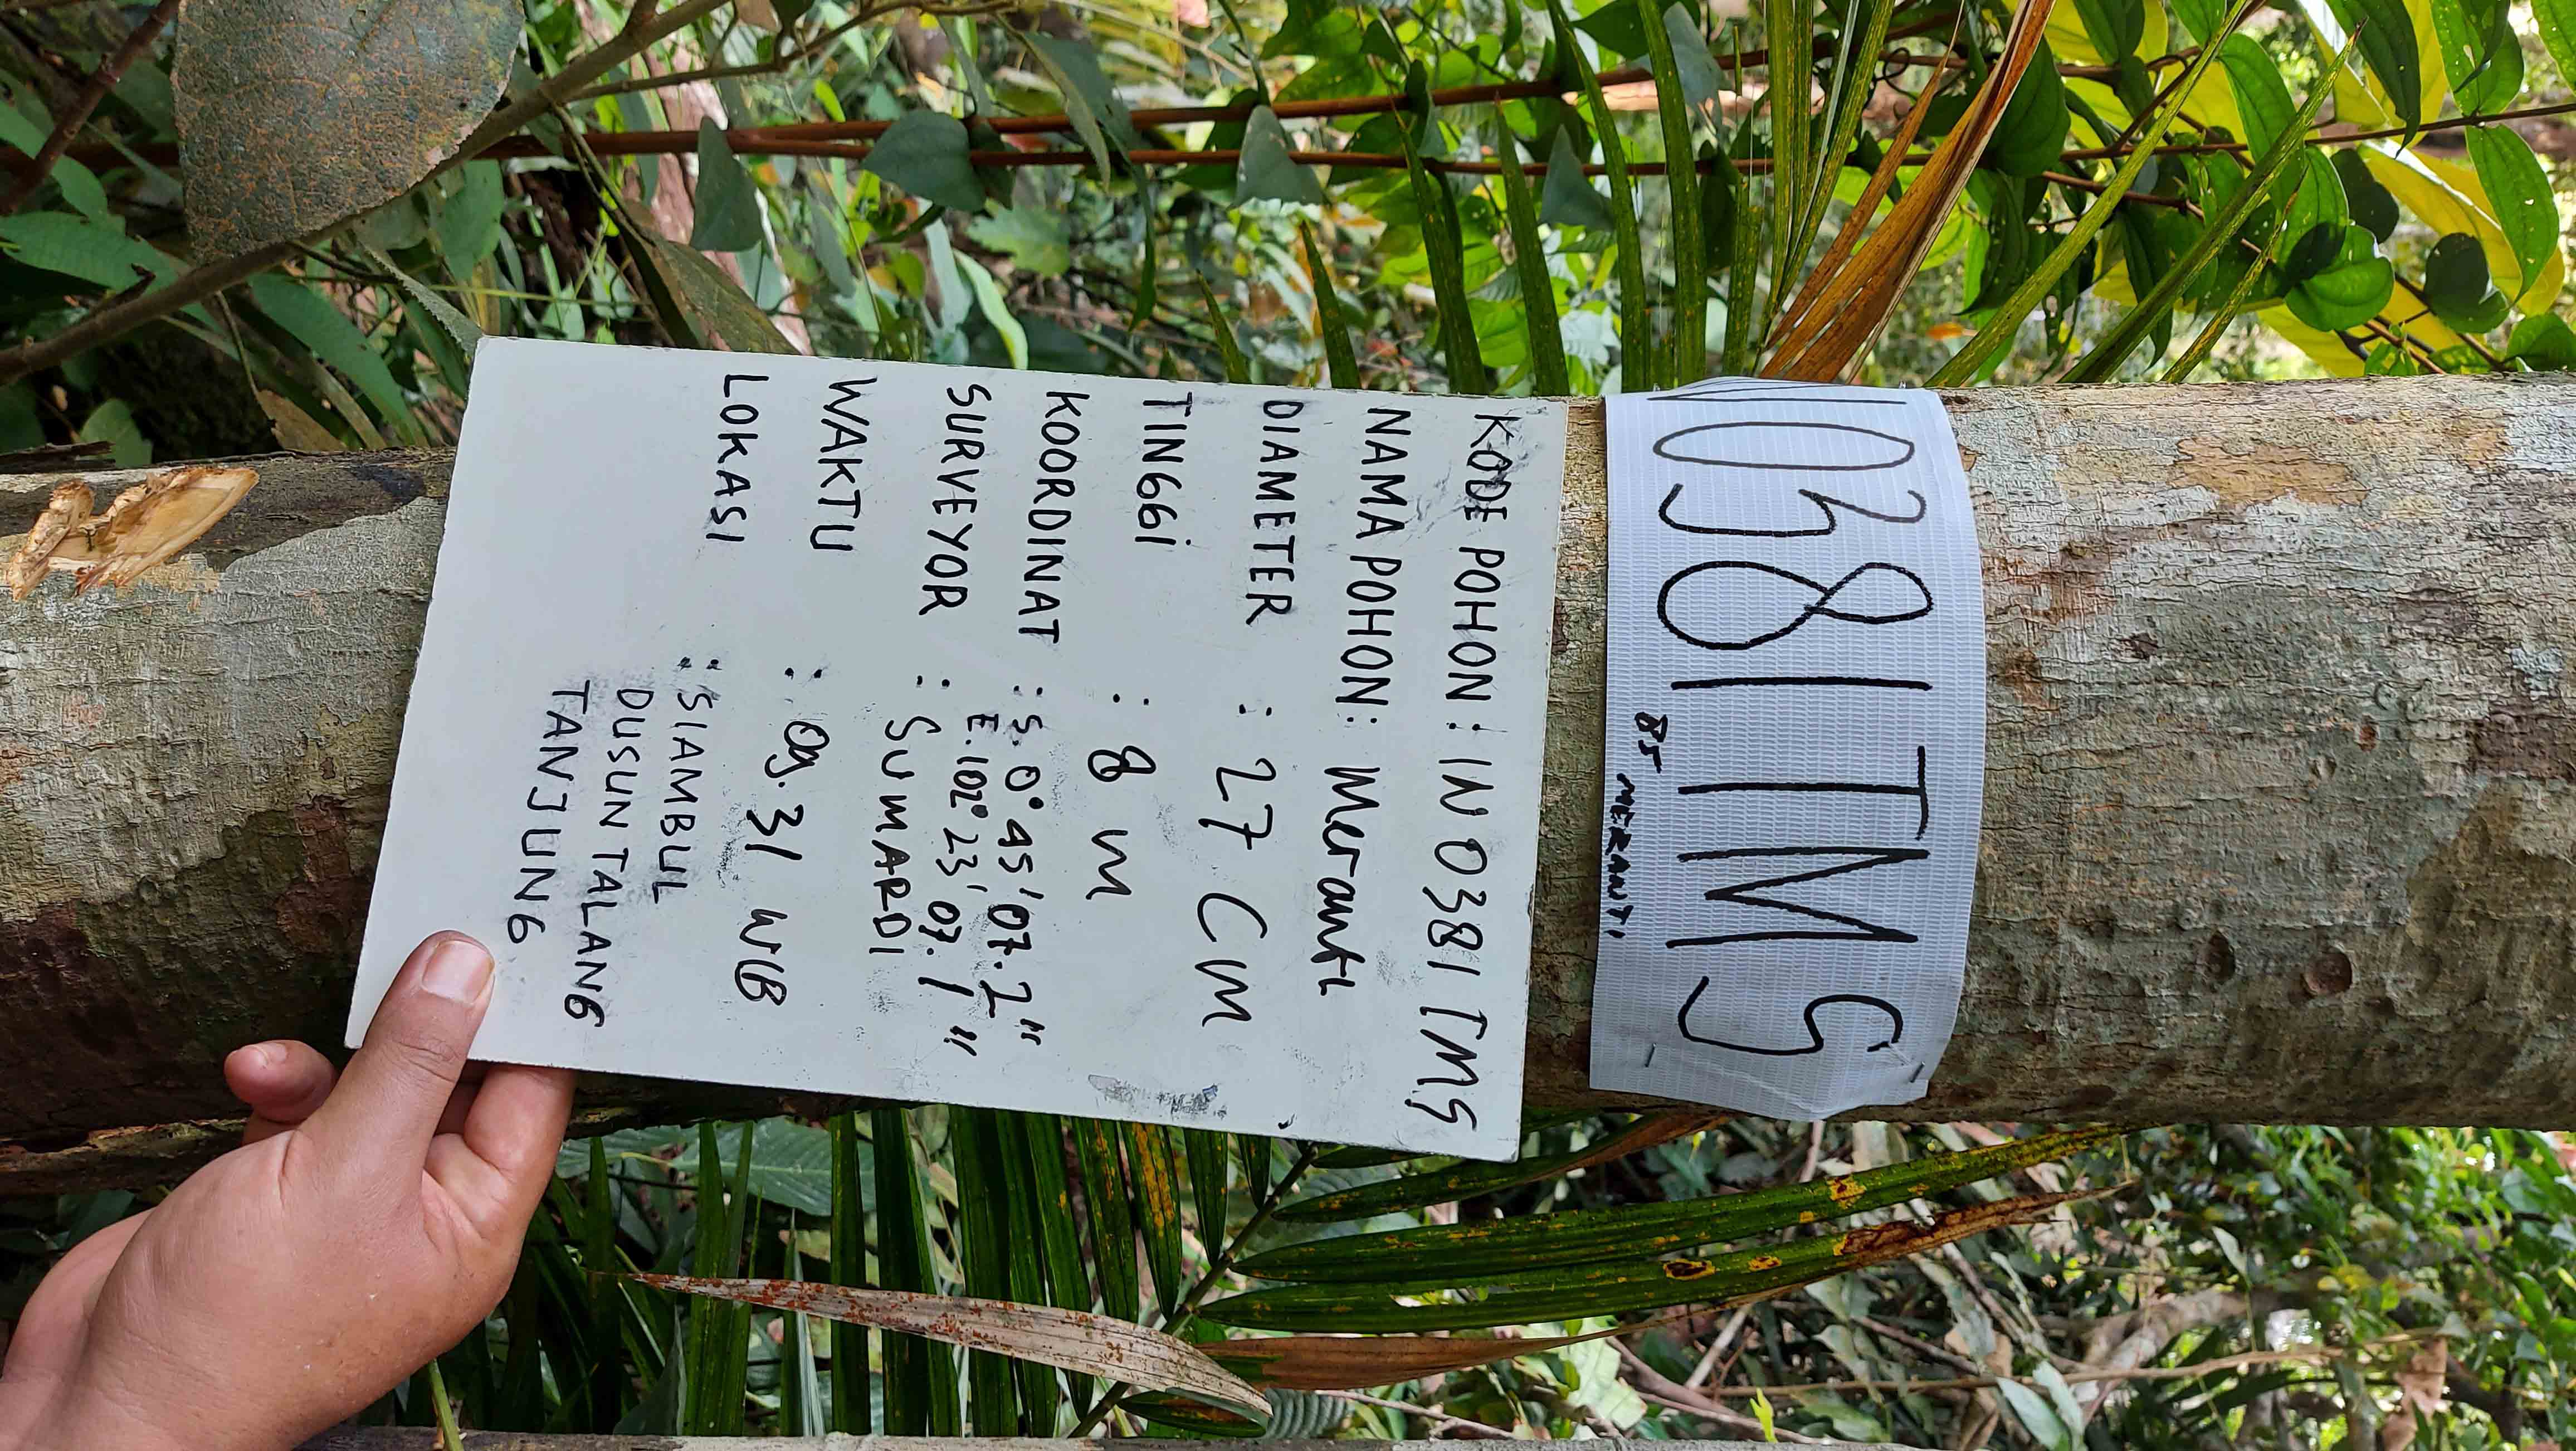 N0381 TMS
85
MERANTI
KODE POHON : IN 0381 TMS
NAMA POHON : Meranti
DIAMETER : 27 CM
TINGGi : 8 m
KOORDINAT : S. 0° 45' 07.2"
E. 102° 23' 07.1"
SURVEYOR : SUMARDI
WAKTU : 09.31 WIB
LOKASI : SIAMBUL
DUSUN TALANG
TANJUNG